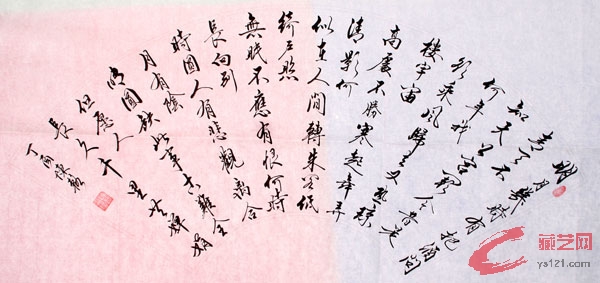 明月幾時有把酒問
青天不
知天上宮闕今昔是
何年我
欲乘風歸去又恐瓊
樓宇
高處不勝寒起舞弄
清影何
似在人間轉朱閣低
綺户照
無眠不應有恨何時
長向別
時圓人有悲歡離合
月有陰
晴圓缺此事古難全
但願人
長久千里共嬋娟
藏艺网
ys121.com